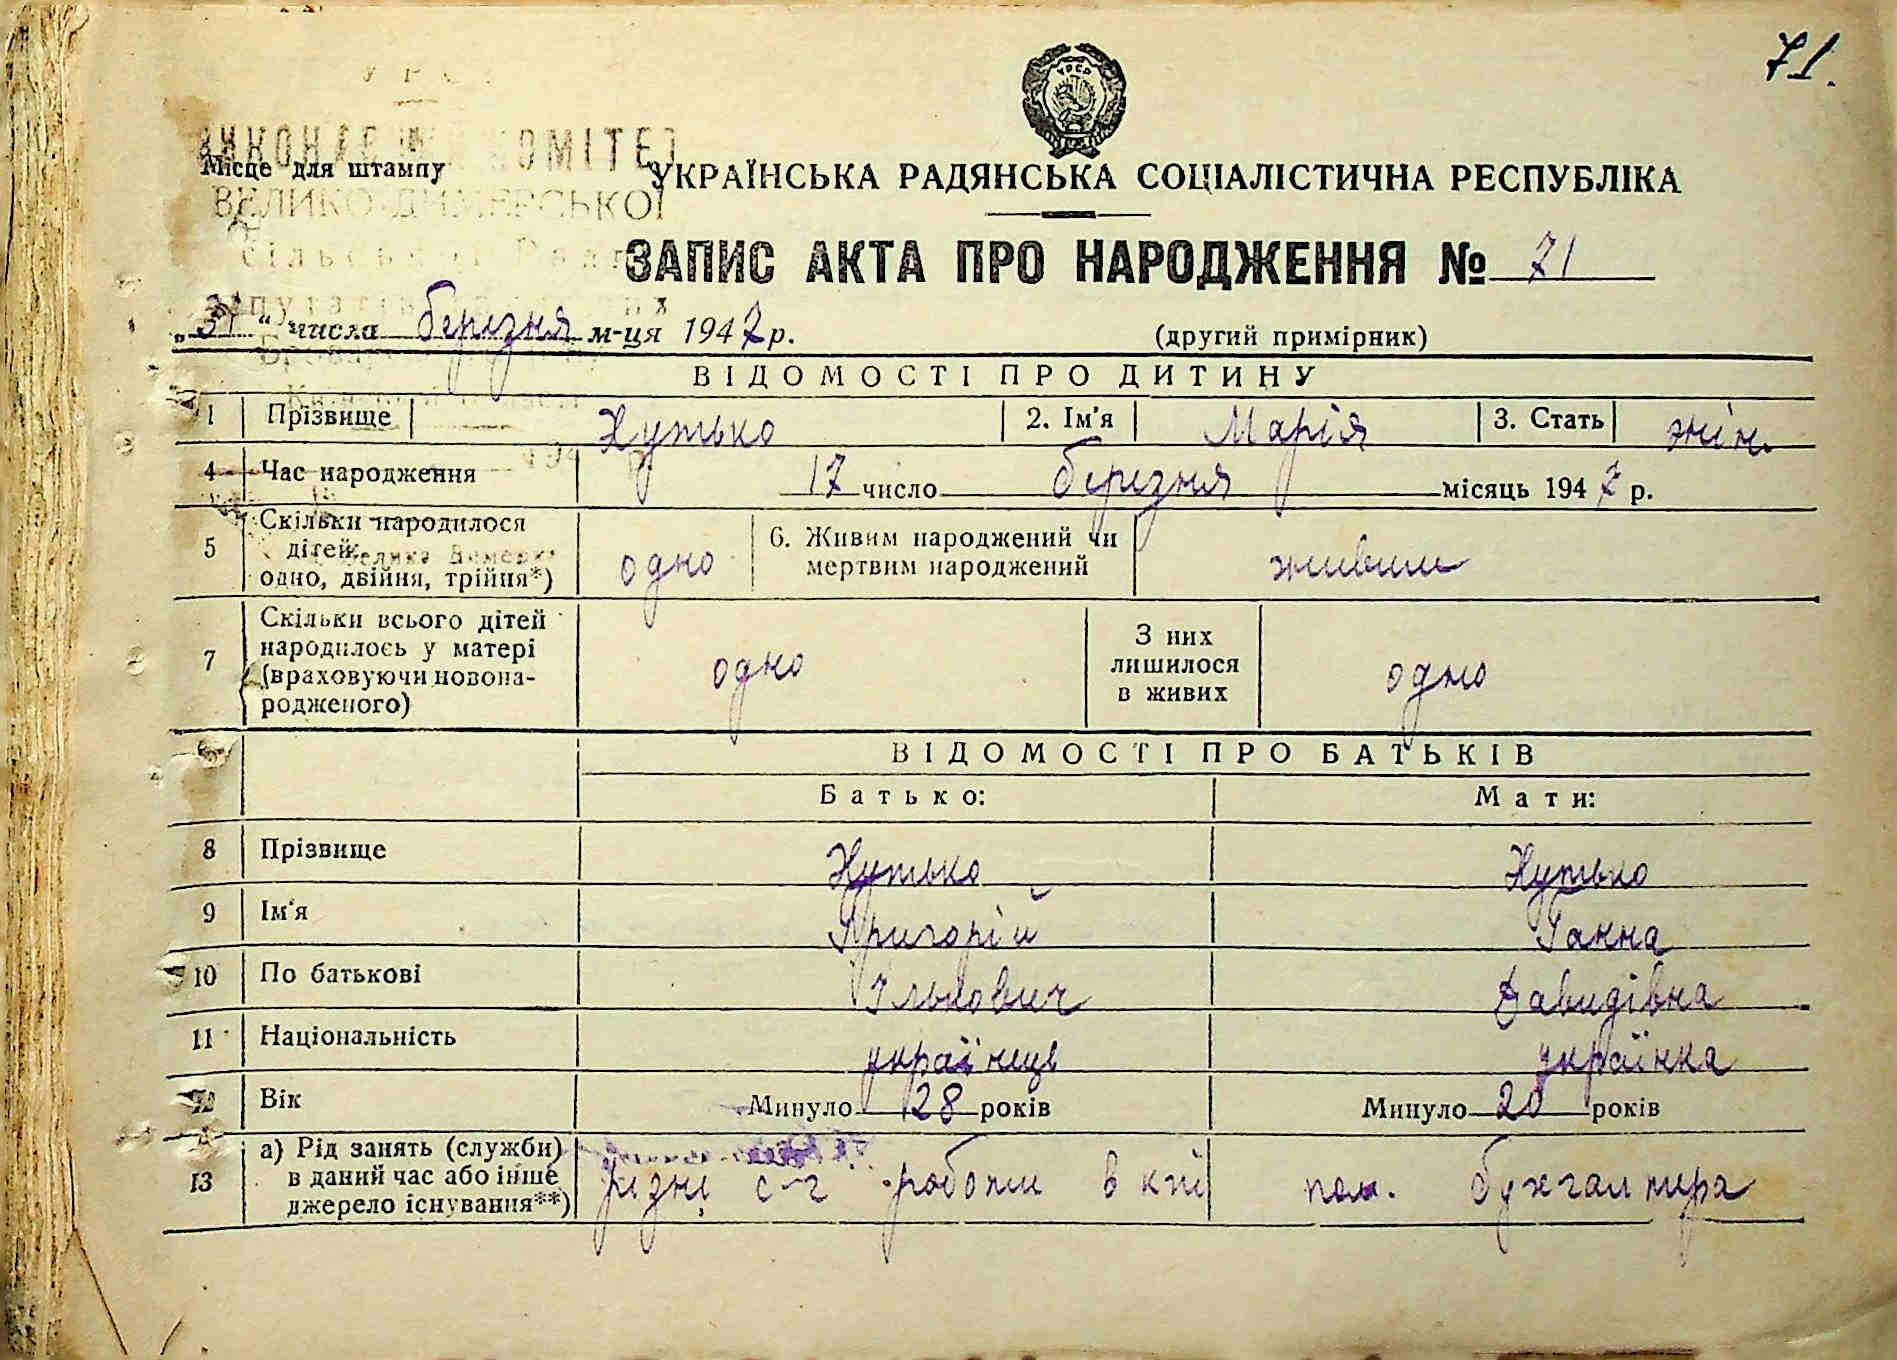 71.
УРСР
ВИКОНАВЧИЙ КОМІТЕТ
Місце для штампу
ВЕЛИКО-ДИМЕРСЬКОЇ
УКРАЇНСЬКА РАДЯНСЬКА СОЦІАЛІСТИЧНА РЕСПУБЛІКА
Сільської Ради
ЗАПИС АКТА ПРО НАРОДЖЕННЯ № 71
„31“ числа березня м-ця 1947 р.
(другий примірник)
ВІДОМОСТІ ПРО ДИТИНУ
1 Прізвище Хутько 2. Ім'я Марія 3. Стать жін.
4 Час народження 17 число березня місяць 1947 р.
5 Скільки народилося дітей: одно, двійня, трійня*) одно 6. Живим народжений чи мертвим народжений живим
7 Скільки всього дітей народилось у матері (враховуючи новонародженого) одно З них лишилося в живих одно
ВІДОМОСТІ ПРО БАТЬКІВ
Батько: Мати:
8 Прізвище Хутько Хутько
9 Ім'я Григорій Ганна
10 По батькові Ількович Давидівна
11 Національність українець українка
12 Вік Минуло 28 років Минуло 20 років
13 а) Рід занять (служби) в даний час або інше джерело існування**) різні с-г роботи в кгі пом. бухгалтера